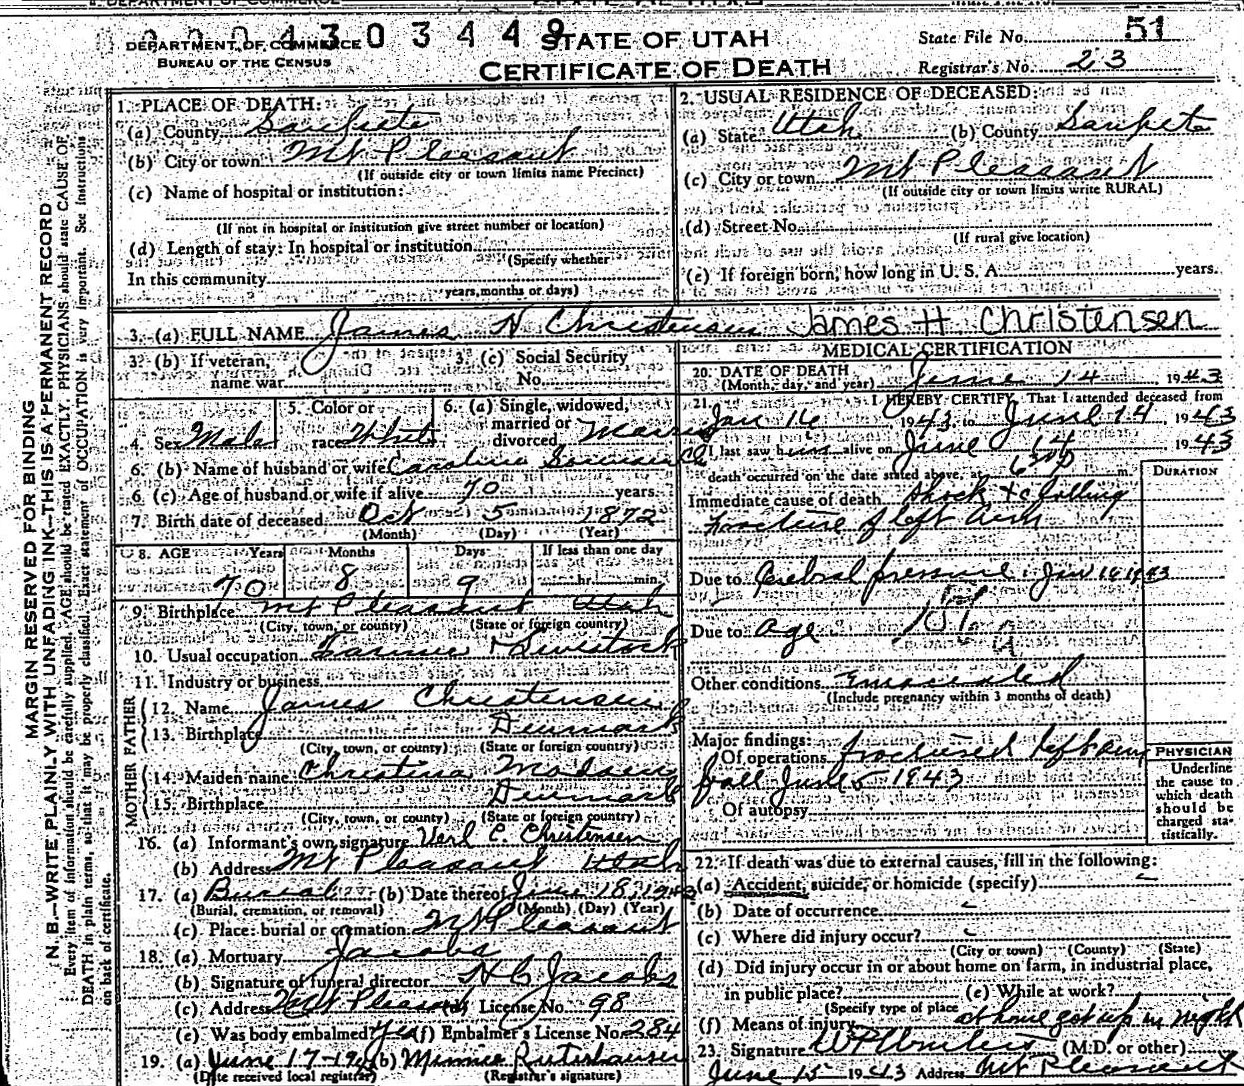 2 0 0 4 3 0 3 4 4 9
DEPARTMENT OF COMMERCE
BUREAU OF THE CENSUS
STATE OF UTAH
CERTIFICATE OF DEATH
State File No. 51
Registrar's No. 23
MARGIN RESERVED FOR BINDING
N. B.—WRITE PLAINLY WITH UNFADING INK—THIS IS A PERMANENT RECORD
Every item of information should be carefully supplied. AGE should be stated EXACTLY. PHYSICIANS should state CAUSE OF
DEATH in plain terms, so that it may be properly classified. Exact statement of OCCUPATION is very important. See instructions
on back of certificate.
1. PLACE OF DEATH:
(a) County Sanpete
(b) City or town Mt Pleasant
(If outside city or town limits name Precinct)
(c) Name of hospital or institution:
(If not in hospital or institution give street number or location)
(d) Length of stay: In hospital or institution
(Specify whether
In this community
years, months or days)
2. USUAL RESIDENCE OF DECEASED:
(a) State Utah (b) County Sanpete
(c) City or town Mt Pleasant
(If outside city or town limits write RURAL)
(d) Street No.
(If rural give location)
(e) If foreign born, how long in U. S. A. years.
3. (a) FULL NAME James H Christensen James H Christensen
3. (b) If veteran, name war
3. (c) Social Security No.
4. Sex Male
5. Color or race White
6. (a) Single, widowed, married or divorced Married
6. (b) Name of husband or wife Caroline Sorensen
6 (c) Age of husband or wife if alive 70 years.
7. Birth date of deceased Oct 5 1872
(Month) (Day) (Year)
8. AGE Years Months Days If less than one day
70 8 9 hr. min.
9. Birthplace Mt Pleasant Utah
(City, town, or county) (State or foreign country)
10. Usual occupation Farmer & Livestock
11. Industry or business
FATHER
12. Name James Christensen
13. Birthplace Denmark
(City, town, or county) (State or foreign country)
MOTHER
14. Maiden name Christina Madsen
15. Birthplace Denmark
(City, town, or county) (State or foreign country)
16. (a) Informant's own signature Verl C. Christensen
(b) Address Mt Pleasant Utah
17. (a) Burial (b) Date thereof June 18, 1943
(Burial, cremation, or removal) (Month) (Day) (Year)
(c) Place: burial or cremation Mt Pleasant
18. (a) Mortuary Jacobs
(b) Signature of funeral director H C Jacobs
(c) Address Mt Pleasant (d) License No. 98
(e) Was body embalmed Yes (f) Embalmer's License No. 284
19. (a) June 17-19 (b) Minnie Rutishauser
(Date received local registrar) (Registrar's signature)
MEDICAL CERTIFICATION
20. DATE OF DEATH
(Month, day, and year) June 14, 1943
21. I HEREBY CERTIFY, That I attended deceased from
Jan 16 1943 to June 14, 1943
I last saw him alive on June 14 1943
death occurred on the date stated above, at m.
DURATION
Immediate cause of death Shock
fracture of left arm
Due to Cerebral pressure Jan 16 1943
Due to age
Other conditions Emaciated
(Include pregnancy within 3 months of death)
Major findings:
Of operations fractured left arm
fall June 5 1943
Of autopsy
PHYSICIAN
Underline
the cause to
which death
should be
charged sta-
tistically.
22. If death was due to external causes, fill in the following:
(a) Accident, suicide, or homicide (specify)
(b) Date of occurrence
(c) Where did injury occur?
(City or town) (County) (State)
(d) Did injury occur in or about home on farm, in industrial place,
in public place? (e) While at work?
(Specify type of place
(f) Means of injury at home got up in night
23. Signature (M.D. or other)
June 15 1943 Address Mt Pleasant